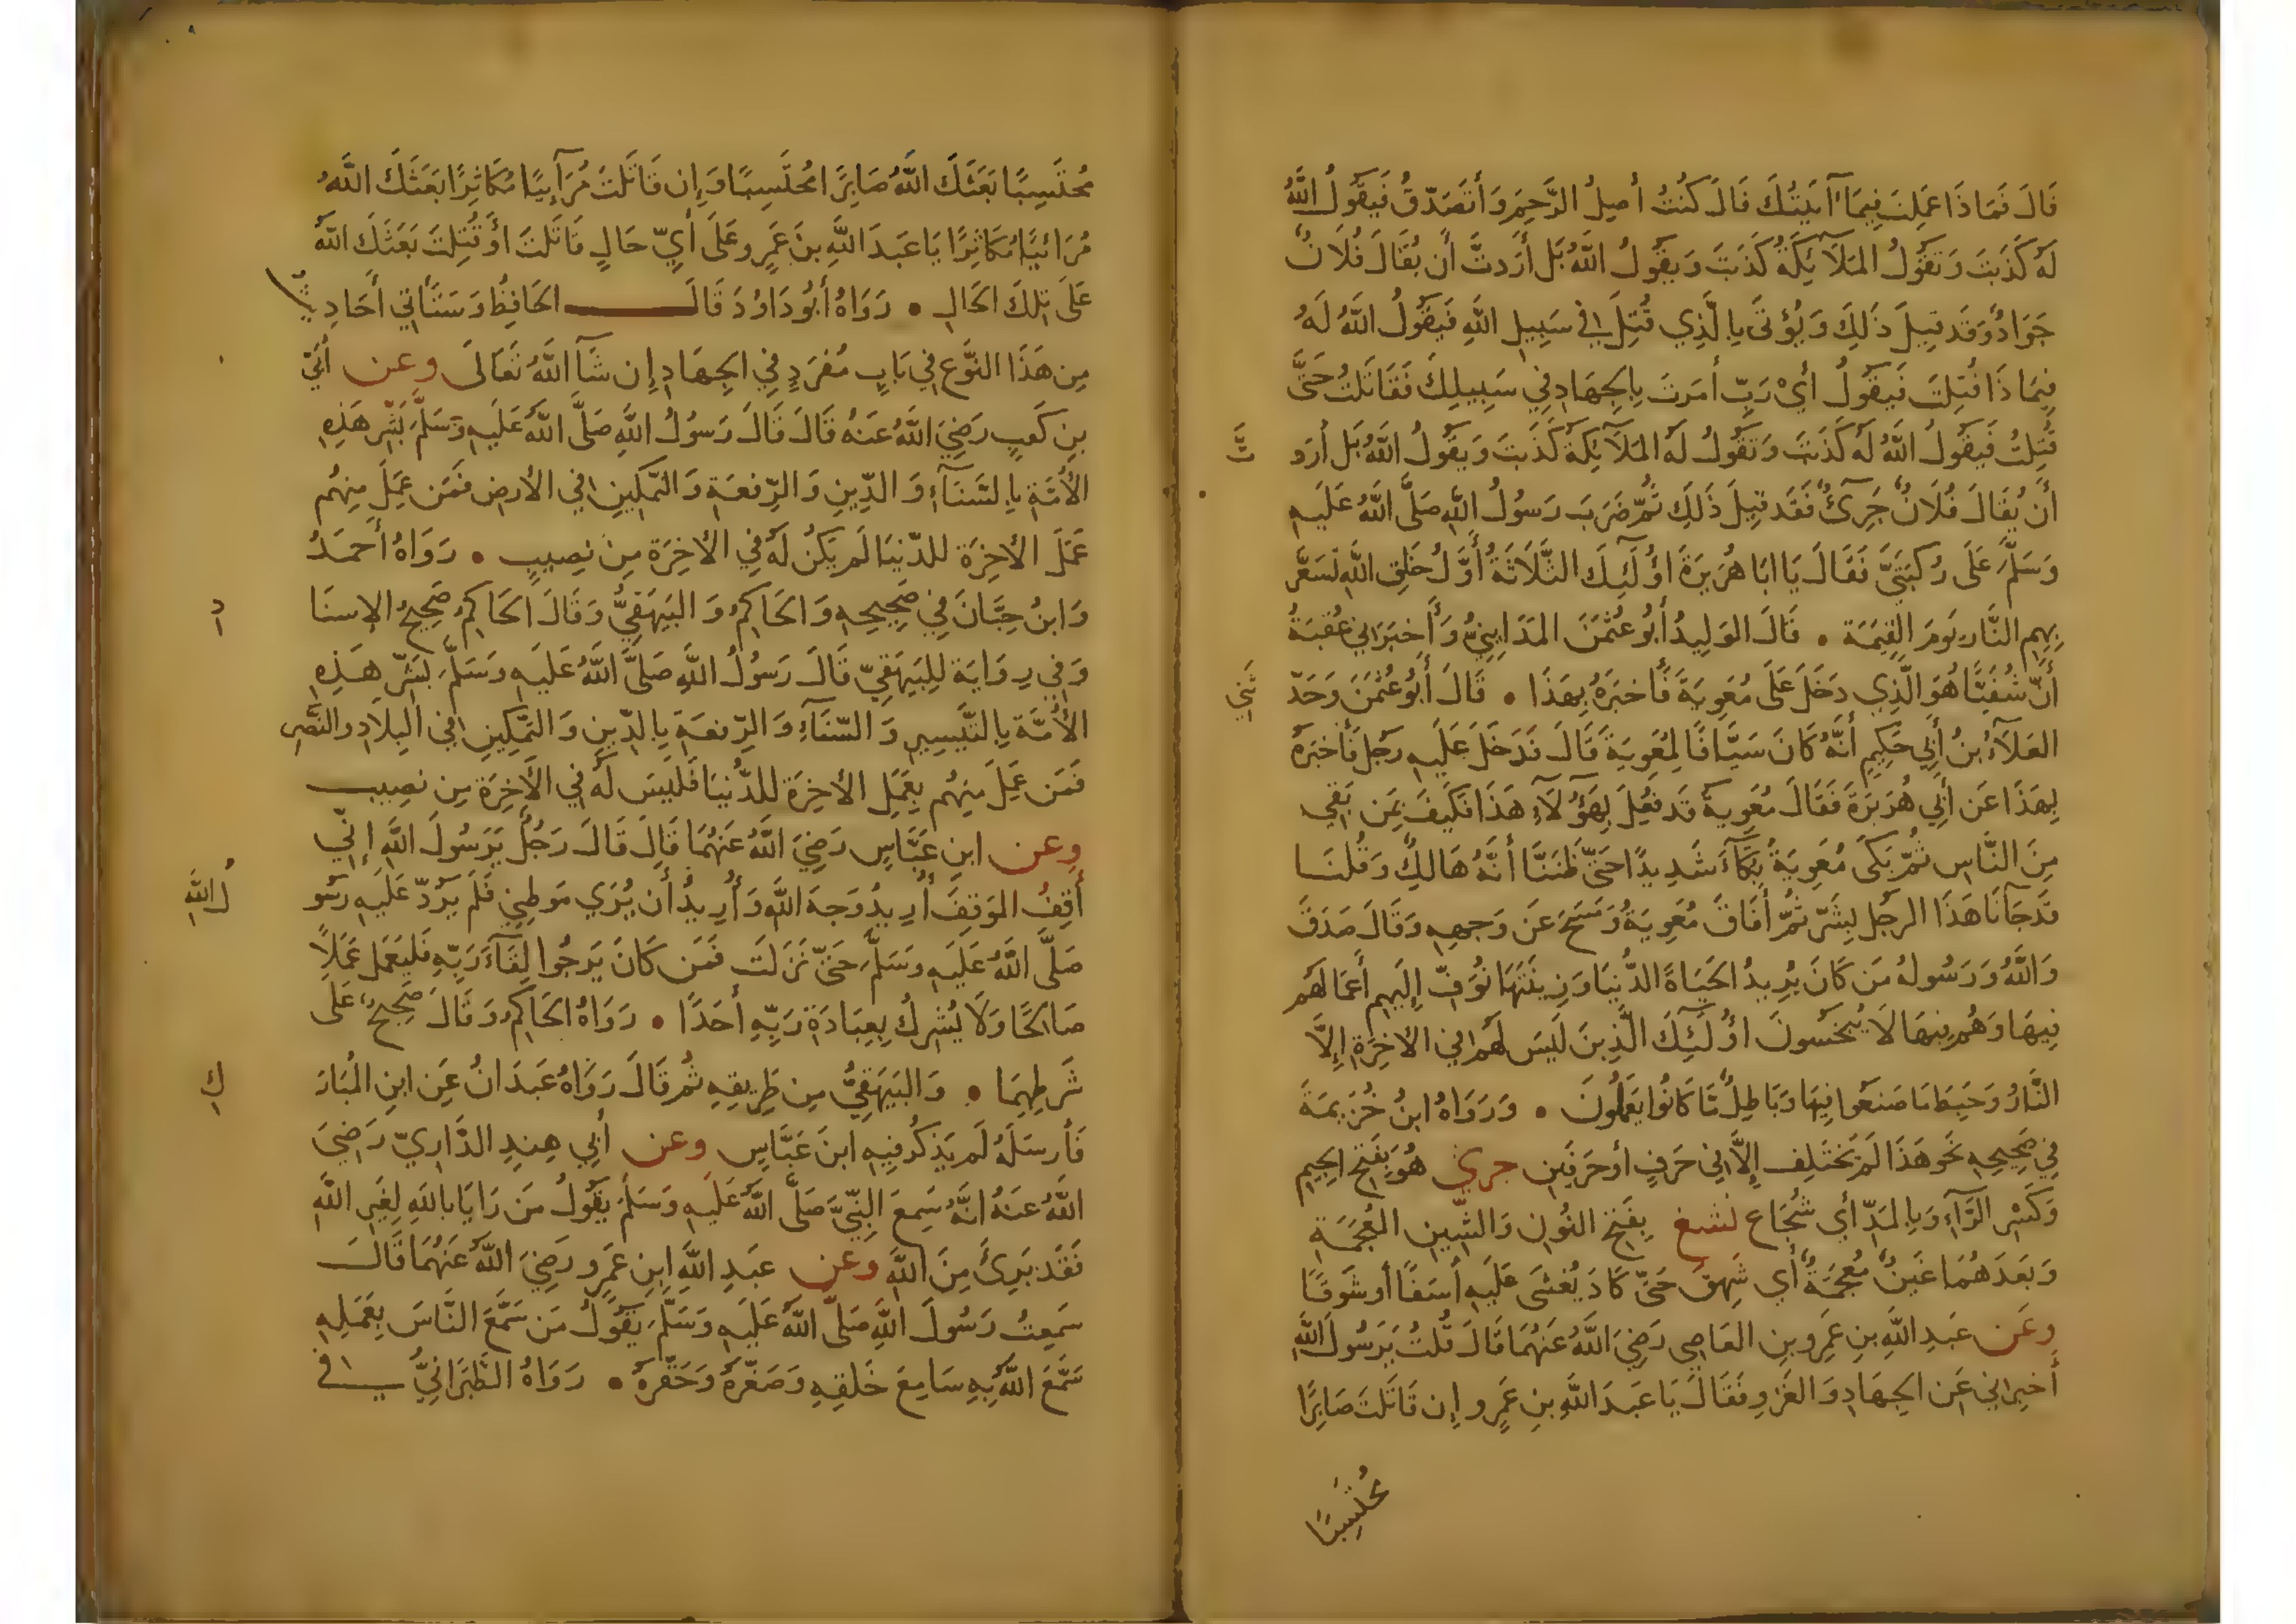 قَالَ فَمَاذَا عَمِلتَ فِيمَا آتَيتُكَ قَالَ كُنتُ أَصِلُ الرَّحِمَ وَأَتَصَدَّقُ فَيَقُولُ اللَّهُ
لَهُ كَذَبتَ وَتَقُولُ المَلَآئِكَةُ كَذَبتَ وَيَقُولُ اللَّهُ بَل أَرَدتَّ أَن يُقَالَ فُلَانٌ
جَوَادٌ وَقَد قِيلَ ذَلِكَ وَيُؤتَى بِالَّذِي قُتِلَ فِي سَبِيلِ اللَّهِ فَيَقُولُ اللَّهُ لَهُ
فِيمَاذَا قُتِلتَ فَيَقُولُ أَيْ رَبِّ أَمَرتَ بِالجِهَادِ فِي سَبِيلِكَ فَقَاتَلتُ حَتَّى
قُتِلتُ فَيَقُولُ اللَّهُ لَهُ كَذَبتَ وَتَقُولُ لَهُ المَلَآئِكَةُ كَذَبتَ وَيَقُولُ اللَّهُ بَل أَرَد
تَّ
أَن يُقَالَ فُلَانٌ جَرِيءٌ فَقَد قِيلَ ذَلِكَ ثُمَّ ضَرَبَ رَسُولُ اللَّهِ صَلَّى اللَّهُ عَلَيهِ
وَسَلَّمَ عَلَى رُكبَتَيَّ فَقَالَ يَا ابَا هُرَيرَةَ اوُلَئِكَ الثَّلَاثَةُ أَوَّلُ خَلقِ اللَّهِ تُسَعَّرُ
بِهِمِ النَّارُ يَومَ القِيمَةِ • قَالَ الوَلِيدُ أَبُو عُثمَنَ المَدَايِنِيُّ وَأَخبَرَانِي عُقبَةُ
أَنَّ شُفَيًّا هُوَ الَّذِي دَخَلَ عَلَى مُعَوِيَةَ فَأَخبَرَهُ بِهَذَا • قَالَ أَبُو عُثمَنَ وَحَدَّ
ثَنِي
العَلَآءُ بنُ أَبِي حَكِيمٍ أَنَّهُ كَانَ سَيَّافًا لِمُعَوِيَةَ قَالَ فَدَخَلَ عَلَيهِ رَجُلٌ فَأَخبَرَهُ
بِهَذَا عَن أَبِي هُرَيرَةَ فَقَالَ مُعَوِيةُ قَد فُعِلَ بِهَؤُلَآءِ هَذَا فَكَيفَ بِمَن بَقِي
مِنَ النَّاسِ ثُمَّ بَكَى مُعَوِيَةُ بُكَآءً شَدِيدًا حَتَّى ظَنَنَّا أَنَّهُ هَالِكٌ وَقُلنَا
قَد جَآنَا هَذَا الرجُل بِشَرّ ثُمَّ أَفَاقَ مُعَوِيَةُ وَمَسَحَ عَن وَجهِهِ وَقَالَ صَدَقَ
وَاللَّهُ وَرَسُولهُ مَن كَانَ يُرِيدُ الحَيَاةَ الدُّنيَا وَزِينَتَهَا نُوَفِّ إِلَيهِم أَعمَالَهُم
فِيهَا وَهُم فِيهَا لَا يُبخَسُونَ اوُلَئِكَ الَّذِينَ لَيسَ لَهُم فِي الأخِرَةِ إِلَّا
النَّارُ وَحَبِطَ مَا صَنَعُوا فِيهَا وَبَاطِلٌ مَّا كَانُوا يَعمَلُونَ • وَرَوَاهُ ابنُ خُزَيمَةَ
فِي صَحِيحِهِ نَحوَ هَذَا لَم يَختَلِف إِلَّا فِي حَرفٍ أَو حَرفَينِ جريٌ هُوَ بِفَتحِ الجِيمِ
وَكَسرِ الرَّآءِ وَبِالمَدِّ أَي شُجَاع نشغ بِفَتحِ النُّونِ وَالشِّينِ المُعجَمَةِ
وَبَعدَهُمَا غَينٌ مُعجَمَةٌ أَي شَهِقَ حَتَّى كَادَ يُغشَى عَلَيهِ أَسَفًا أَو شَوقًا
وعَن عَبدِ اللَّهِ بنِ عَمرِو بنِ العَاصِي رَضِيَ اللَّهُ عَنهُمَا قَالَ قُلتُ يَرَسُولَ اللَّهِ
أَخبِرنِي عَن الجِهَادِ وَالغَزوِ فَقَالَ يَا عَبدَ اللَّهِ بنِ عَمرٍو إِن قَاتَلتَ صَابِرًا
مُحتَسِبًا
مُحتَسِبًا بَعَثَكَ اللَّهُ صَابِرًا مُحتَسِبًا وَإِن قَاتَلتَ مُرَآيِيًا مُكَاثِرًا بَعَثَكَ اللَّهُ
مُرَائِيًا مُكَاثِرًا يَا عَبدَ اللَّهِ بنَ عَمرٍو عَلَى أَيِّ حَالٍ قَاتَلتَ أَو قُتِلتَ بَعَثَكَ اللَّهُ
عَلَى تِلكَ الحَالِ • رَوَاهُ أَبُو دَاوُدَ قَالَ الحَافِظُ وَسَتَأتِي أَحَادِيثُ
مِن هَذَا النَّوعِ فِي بَابٍ مُفرَدٍ فِي الجِهَادِ إِن شَآ اللَّهُ تَعَالَى وعن أُبَيِّ
بنِ كَعبٍ رَضِيَ اللَّهُ عَنهُ قَالَ قَالَ رَسُولُ اللَّهِ صَلَّى اللَّهُ عَلَيهِ وَسَلَّمَ بَشِّر هَذِهِ
الأُمَّةِ بِالسَّنَآءِ وَالدِّينِ وَالرِّفعَةِ وَالتَّمكِينِ فِي الأَرضِ فَمَن عَمِلَ مِنهُم
عَمَلَ الأخِرَةِ لِلدُّنيَا لَم يَكُن لَهُ فِي الأخِرَةِ مِن نَصِيبٍ • رَوَاهُ أَحمَدُ
وَابنُ حِبَّانَ فِي صَحِيحِهِ وَالحَاكِمُ وَالبَيهَقِيُّ وَقَالَ الحَاكِمُ صَحِيحُ الإِسنَا
دِ
وَفِي رِوَايَةٍ لِلبَيهَقِيِّ قَالَ رَسُولُ اللَّهِ صَلَّى اللَّهُ عَلَيهِ وَسَلَّمَ بَشِّر هَذِهِ
الأُمَّةِ بِالتَّيسِيرِ وَالسَّنَآءِ وَالرِّفعَةِ بِالدِّينِ وَالتَّمكِينِ فِي البِلَادِ والنَّصرِ
فَمَن عَمِلَ مِنهُم بِعَمَلِ الأخِرَةِ لِلدُّنيَا فَلَيسَ لَهُ فِي الأَخِرَةِ مِن نَصِيبٍ
وعن ابنِ عَبَّاسٍ رَضِيَ اللَّهُ عَنهُمَا قَالَ قَالَ رَجُلٌ يَرَسُولَ اللَّهِ إِنِّي
أَقِفُ المَوقِفَ أُرِيدُ وَجهَ اللَّهِ وَأُرِيدُ أَن يُرَي مَوطِنِي فَلَم يَرُدَّ عَلَيهِ رَسُو
لُ اللَّهِ
صَلَّى اللَّهُ عَلَيهِ وَسَلَّمَ حَتَّى نَزَلَت فَمَن كَانَ يَرجُوا لِقَآءَ رَبِّهِ فَليَعمَل عَمَلًا
صَالِحًا وَلَا يُشرِك بِعِبَادَةِ رَبِّهِ أَحَدًا • رَوَاهُ الحَاكِمُ وَقَالَ صَحِيحٌ عَلَى
شَرطِهِمَا • وَالبَيهَقِيُّ مِن طَرِيقِهِ ثُمَّ قَالَ رَوَاهُ عَبدَانُ عَنِ ابنِ المُبَارَ
كِ
فَأَرسَلَهُ لَم يَذكُر فِيهِ ابنَ عَبَّاسٍ وعن أَبِي هِندِ الدَّارِيِّ رَضِيَ
اللَّهُ عَنهُ انَّهُ سَمِعَ النَّبِيَّ صَلَّى اللَّهُ عَلَيهِ وَسَلَّمَ يَقُولُ مَن رَايَا بِاللَّهِ لِغَيرِ اللَّهِ
فَقَد بَرِئَ مِنَ اللَّهِ وعن عَبدِ اللَّهِ ابنِ عَمرٍو رَضِيَ اللَّهُ عَنهُمَا قَالَ
سَمِعتُ رَسُولَ اللَّهِ صَلَّى اللَّهُ عَلَيهِ وَسَلَّمَ يَقُولُ مَن سَمَّعَ النَّاسَ بِعَمَلِهِ
سَمَّعَ اللَّهُ بِهِ سَامِعَ خَلقِهِ وَصَغَّرَهُ وَحَقَّرَهُ • رَوَاهُ الطَّبَرَانِيُّ فِي